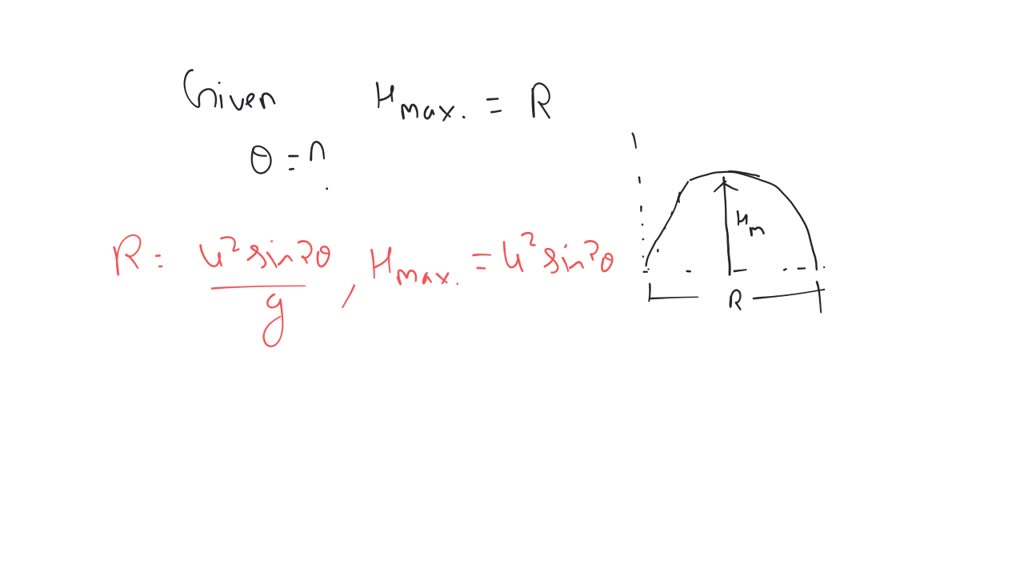 Given H max. = R
θ = ?
R = u² sin 2θ / g , H max. = u² sin²θ
H m
R